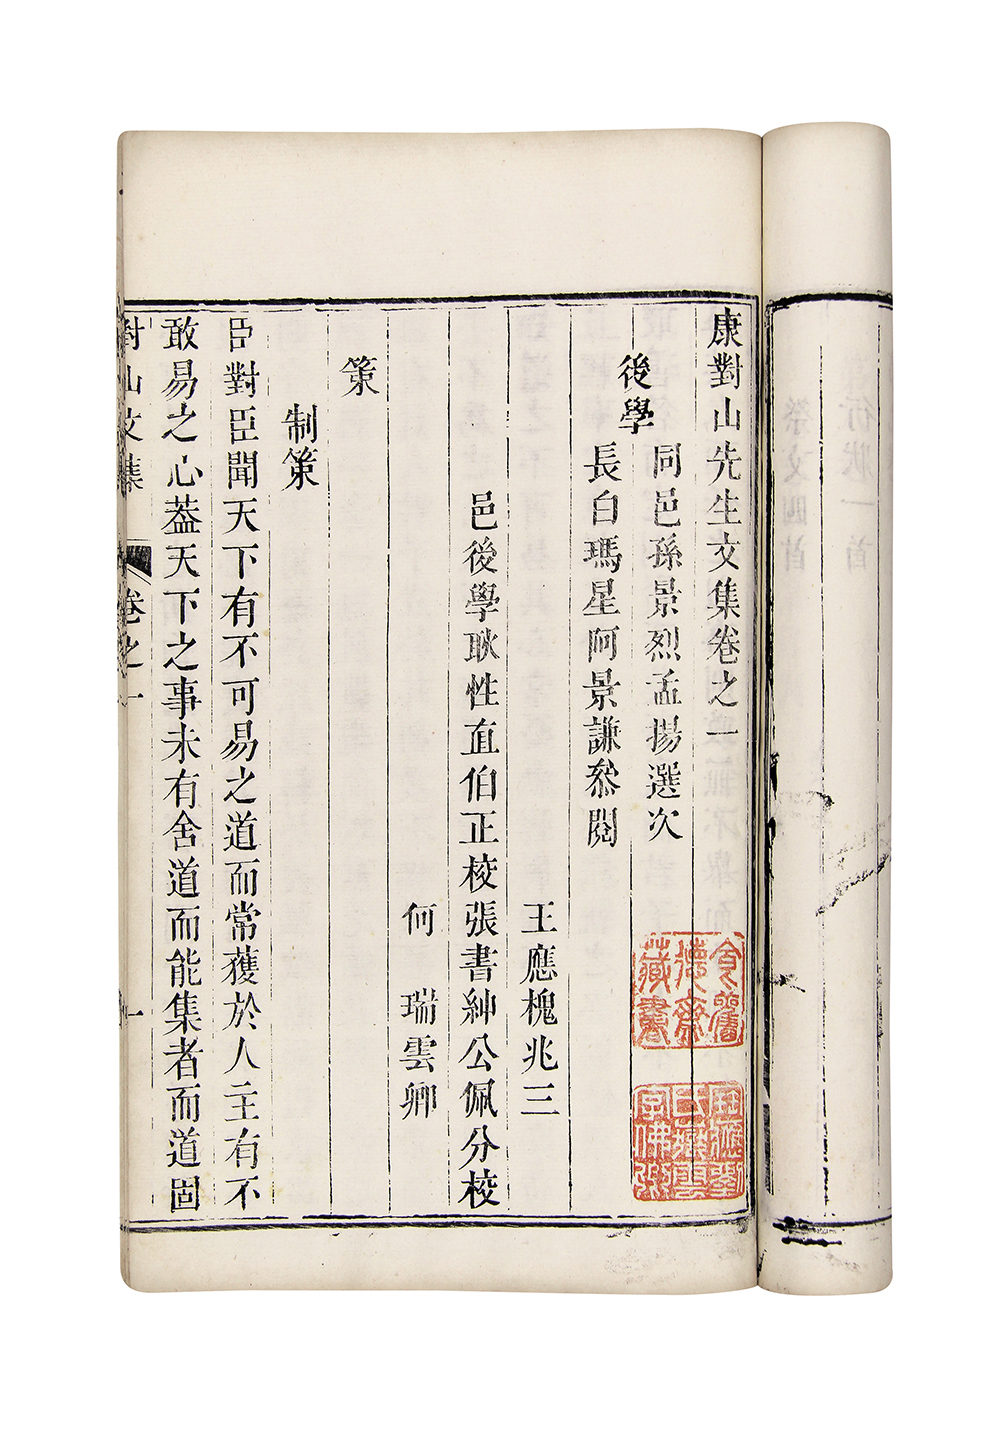 康對山先生文集卷之一
後學
同邑孫景烈孟揚選次
長白瑪星阿景謙叅閱
王應槐兆三
邑後學耿性直伯正校張書紳公佩分校
何瑞雲卿
策
制策
臣對臣聞天下有不可易之道而常獲於人主有不
敢易之心葢天下之事未有舍道而能集者而道固
對山文集
卷之一
一
食舊德齋藏書